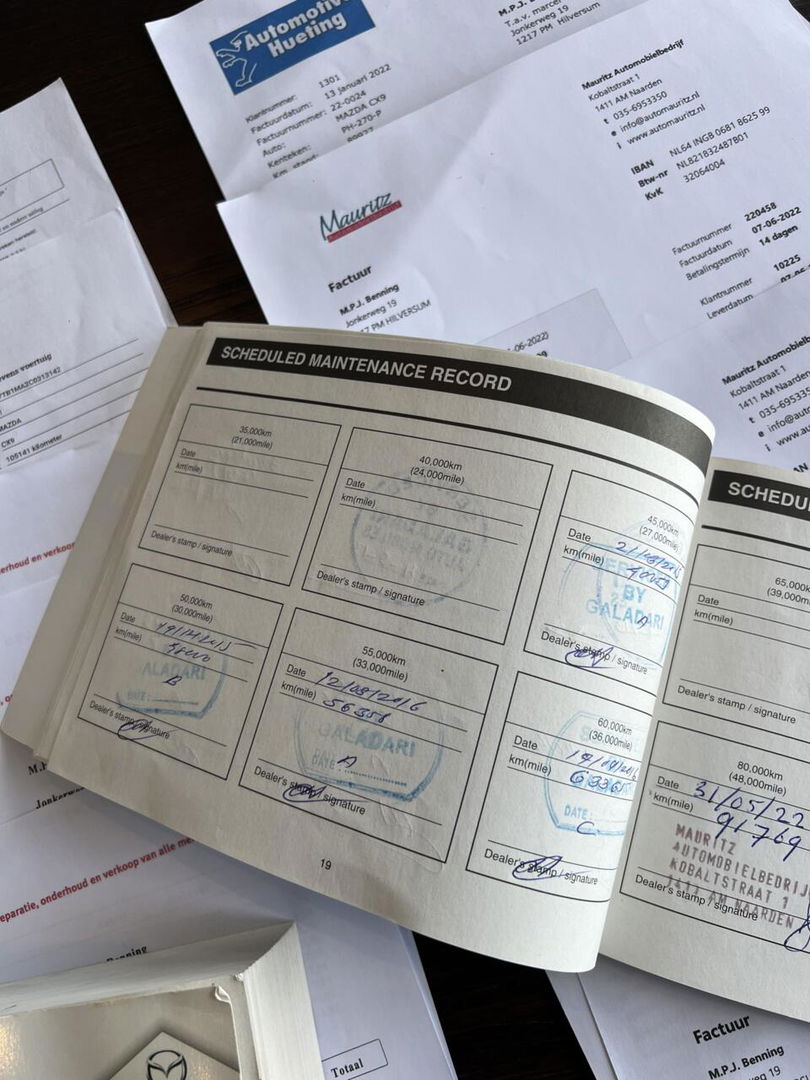 Automotive
Hueting
Klantnummer: 1301
Factuurdatum: 13 januari 2022
Factuurnummer: 22-0024
Auto: MAZDA CX9
Kenteken: PH-270-P
Km. stand:
M.P.J.
T.a.v. marcel
Jonkerweg 19
1217 PM Hilversum
Mauritz
Factuur
M.P.J. Benning
Jonkerweg 19
PM HILVERSUM
Mauritz Automobielbedrijf
Kobaltstraat 1
1411 AM Naarden
t 035-6953350
e info@automauritz.nl
i www.automauritz.nl
IBAN NL64 INGB 0681 8625 99
Btw-nr NL821832487B01
KvK 32064004
Factuurnummer 220458
Factuurdatum 07-06-2022
Betalingstermijn 14 dagen
Klantnummer 10225
Leverdatum
-06-2022)
Mauritz Automobielb
Kobaltstraat 1
1411 AM Naarden
t 035-69533
e info@au
i www.au
voertuig
MAZDA
CX9
105141 kilometer
SCHEDULED MAINTENANCE RECORD
35,000km
(21,000mile)
Date
km(mile)
Dealer's stamp / signature
40,000km
(24,000mile)
Date
km(mile)
Dealer's stamp / signature
45,000km
(27,000mile)
Date
km(mile)
BY
GALADARI
Dealer's stamp / signature
50,000km
(30,000mile)
Date
km(mile)
ALADARI
DATE:
Dealer's stamp / signature
55,000km
(33,000mile)
Date 12/03/2016
km(mile) 56358
GALADARI
DATE:
Dealer's stamp / signature
60,000km
(36,000mile)
Date
km(mile)
DATE:
Dealer's stamp / signature
19
SCHEDU
65,000k
(39,000m
Date
km(mile)
Dealer's stamp / signature
80,000km
(48,000mile)
Date 31/05/22
km(mile) 91769
MAURITZ
AUTOMOBIELBEDRIJ
KOBALTSTRAAT 1
1411 AM NAARDEN
Dealer's stamp / signature
onderhoud en verkoop van alle
Totaal
Factuur
M.P.J. Benning